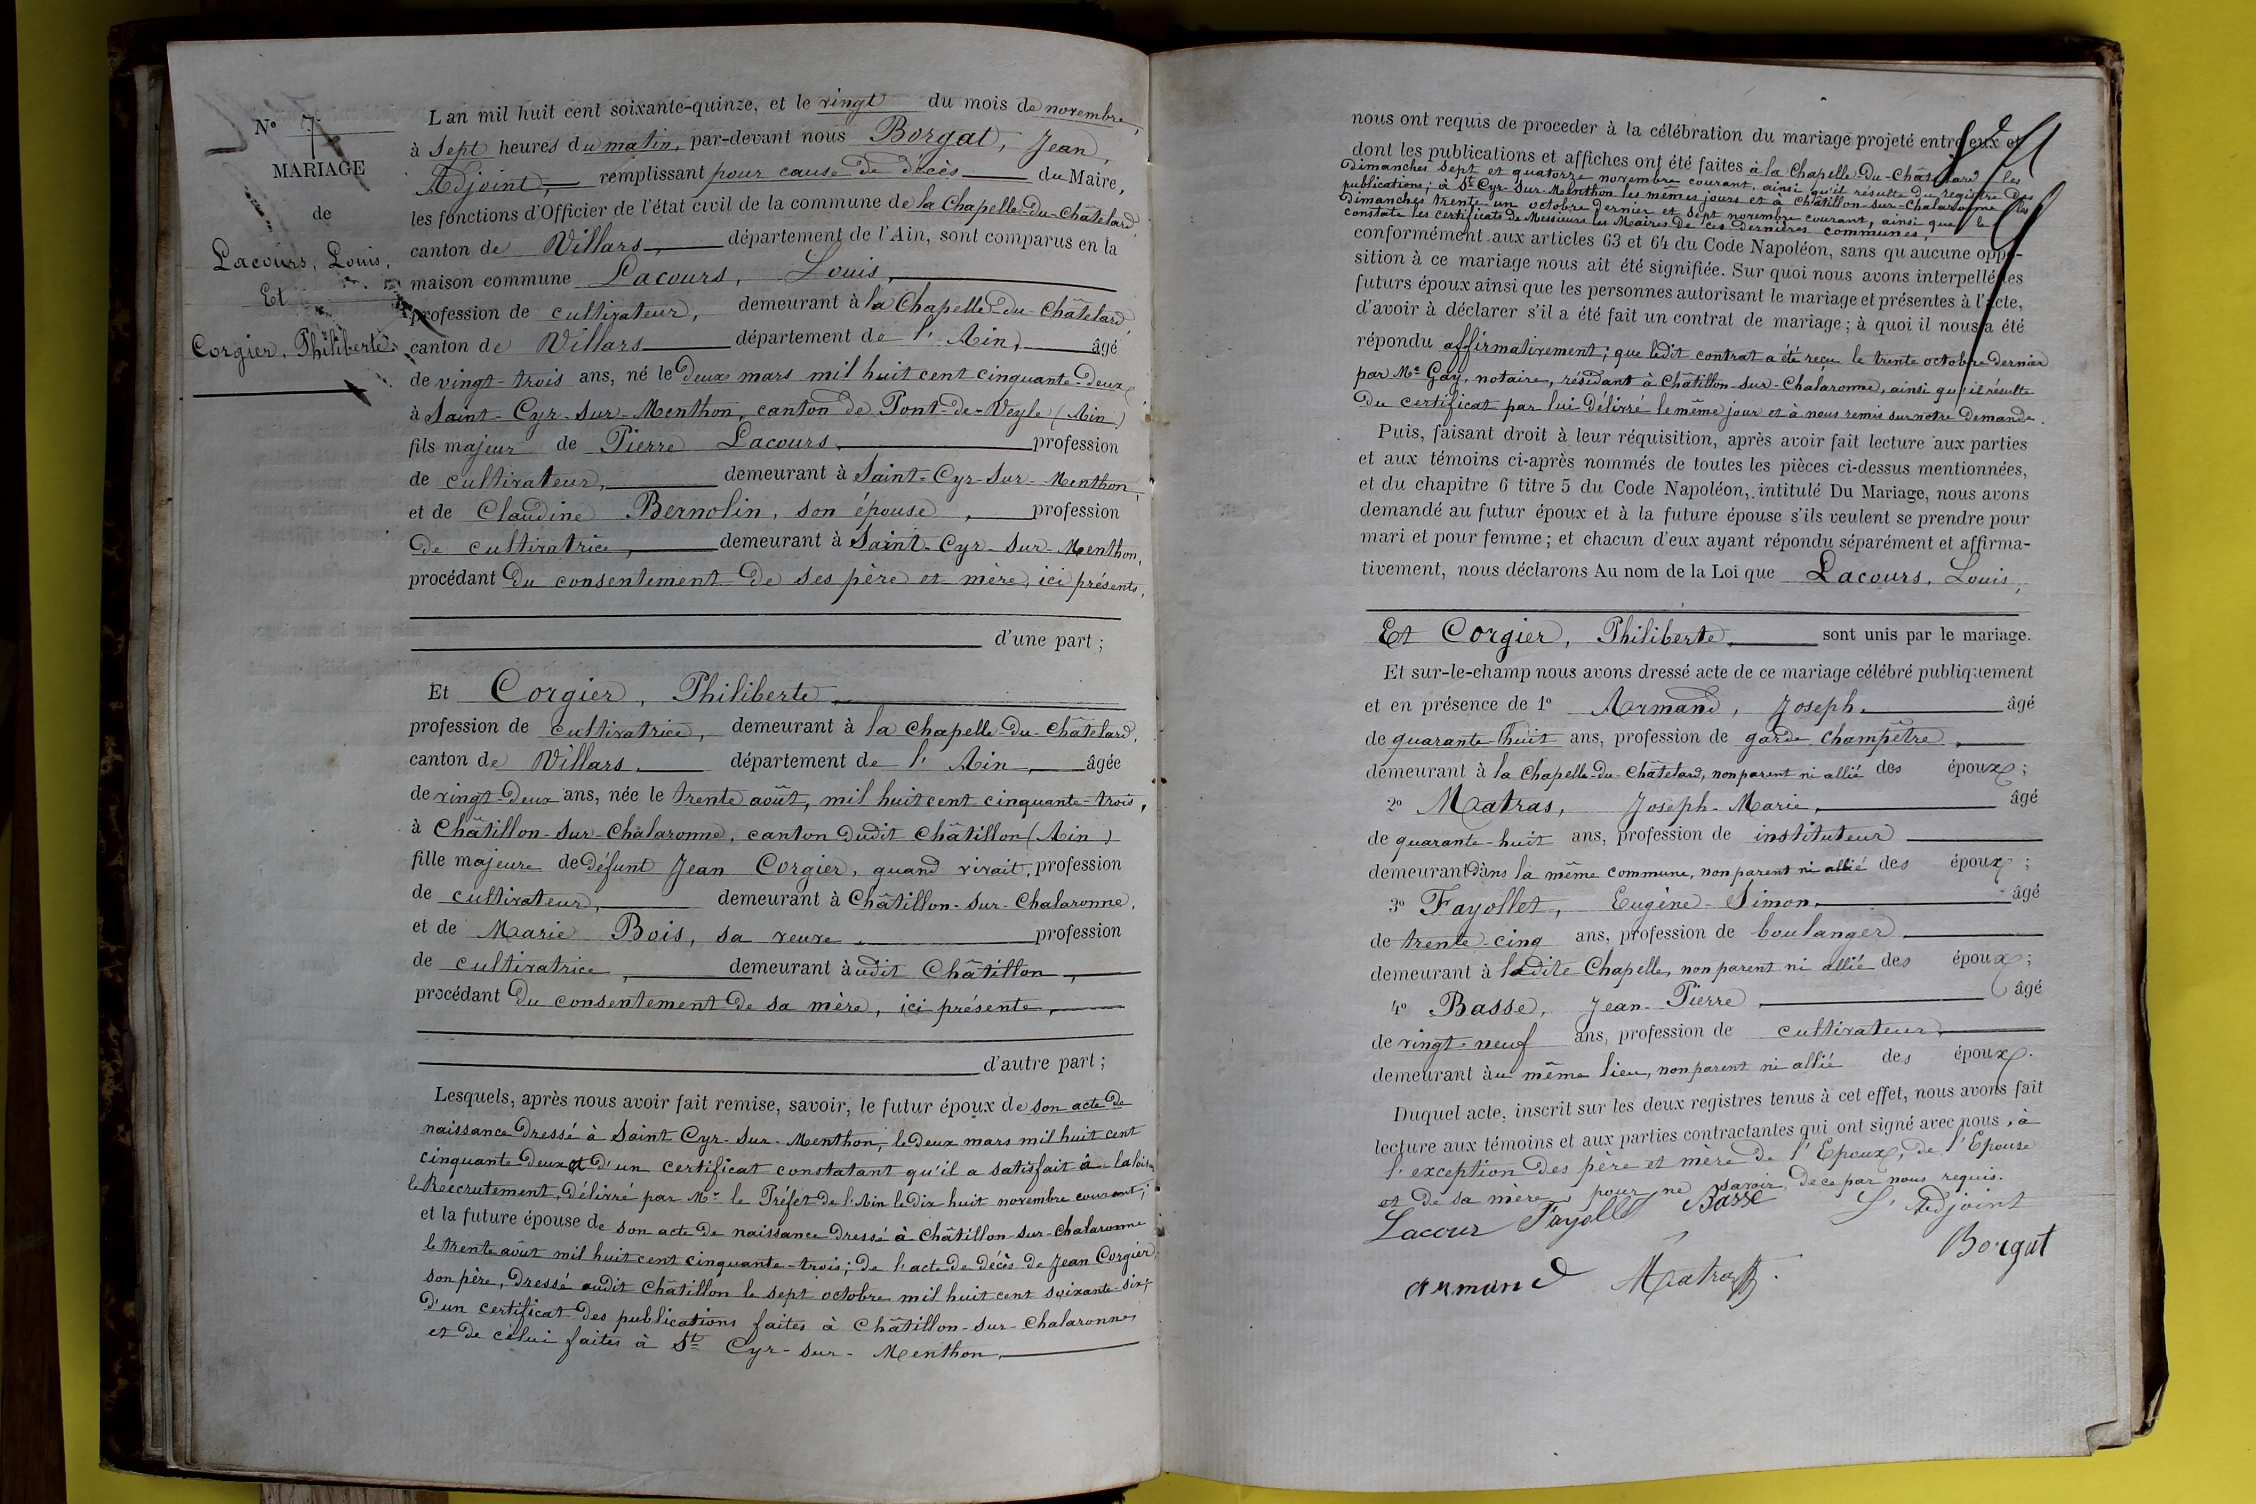 N° 7.
MARIAGE
de
Lacours, Louis,
Et
Corgier, Philiberte.
L an mil huit cent soixante-quinze, et le vingt du mois de novembre,
à sept heures du matin, par-devant nous Borgat, Jean,
Adjoint, remplissant pour cause de décès du Maire,
les fonctions d'Officier de l'état civil de la commune de la Chapelle-du-Châtelard,
canton de Villars, département de l'Ain, sont comparus en la
maison commune Lacours, Louis,
profession de cultivateur, demeurant à la Chapelle-du-Châtelard,
canton de Villars département de l'Ain, âgé
de vingt-trois ans, né le deux mars mil huit cent cinquante-deux,
à Saint-Cyr-sur-Menthon, canton de Pont-de-Veyle (Ain)
fils majeur de Pierre Lacours, profession
de cultivateur, demeurant à Saint-Cyr-sur-Menthon,
et de Claudine Bernolin, son épouse, profession
de cultivatrice, demeurant à Saint-Cyr-sur-Menthon,
procédant du consentement de ses père et mère, ici présents,
d'une part ;
Et Corgier, Philiberte,
profession de cultivatrice, demeurant à la Chapelle-du-Châtelard,
canton de Villars, département de l'Ain, âgée
de vingt-deux ans, née le trente août, mil huit cent cinquante-trois,
à Châtillon-sur-Chalaronne, canton dudit Châtillon (Ain)
fille majeure de défunt Jean Corgier, quand vivait, profession
de cultivateur, demeurant à Châtillon-sur-Chalaronne,
et de Marie Bois, sa veuve, profession
de cultivatrice, demeurant audit Châtillon,
procédant du consentement de sa mère, ici présente,
d'autre part ;
Lesquels, après nous avoir fait remise, savoir, le futur époux de son acte de
naissance dressé à Saint Cyr-sur-Menthon, le deux mars mil huit cent
cinquante deux et d'un certificat constatant qu'il a satisfait à la loi sur
le Recrutement, délivré par Mr le Préfet de l'Ain le dix huit novembre courant;
et la future épouse de son acte de naissance dressé à Châtillon-sur-Chalaronne
le trente août mil huit cent cinquante-trois; de l'acte de décès de Jean Corgier,
son père, dressé audit Châtillon le sept octobre mil huit cent soixante-six;
d'un certificat des publications faites à Châtillon-sur-Chalaronne,
et de celui faites à St Cyr-sur-Menthon,
nous ont requis de proceder à la célébration du mariage projeté entre eux et
dont les publications et affiches ont été faites à la Chapelle-du-Châtelard les
dimanches sept et quatorze novembre courant, ainsi qu'il résulte du registre des
publications; à St Cyr-sur-Menthon les mêmes jours et à Châtillon-sur-Chalaronne les
dimanches trente-un octobre dernier et sept novembre courant, ainsi que le
constate les certificats de Messieurs les Maires de ces dernières communes,
conformément aux articles 63 et 64 du Code Napoléon, sans qu aucune oppo-
sition à ce mariage nous ait été signifiée. Sur quoi nous avons interpellé les
futurs époux ainsi que les personnes autorisant le mariage et présentes à l'acte,
d'avoir à déclarer s'il a été fait un contrat de mariage ; à quoi il nous a été
répondu affirmativement; que ledit contrat a été reçu le trente octobre dernier
par Me Gay, notaire, résidant à Châtillon-sur-Chalaronne, ainsi qu'il résulte
du certificat par lui délivré le même jour et à nous remis sur notre demande.
Puis, faisant droit à leur réquisition, après avoir fait lecture aux parties
et aux témoins ci-après nommés de toutes les pièces ci-dessus mentionnées,
et du chapitre 6 titre 5 du Code Napoléon, intitulé Du Mariage, nous avons
demandé au futur époux et à la future épouse s'ils veulent se prendre pour
mari et pour femme ; et chacun d'eux ayant répondu séparément et affirma-
tivement, nous déclarons Au nom de la Loi que Lacours, Louis,
Et Corgier, Philiberte, sont unis par le mariage.
Et sur-le-champ nous avons dressé acte de ce mariage célébré publiquement
et en présence de 1° Armand, Joseph, âgé
de quarante-huit ans, profession de garde champêtre,
demeurant à la Chapelle-du-Châtelard, non parent ni allié des époux ;
2° Matras, Joseph-Marie, âgé
de quarante-huit ans, profession de instituteur
demeurant dans la même commune, non parent ni allié des époux ;
3° Fayollet, Eugène-Simon, âgé
de trente-cinq ans, profession de boulanger
demeurant à ladite Chapelle, non parent ni allié des époux ;
4° Basse, Jean-Pierre âgé
de vingt-neuf ans, profession de cultivateur
demeurant au même lieu, non parent ni allié des époux.
Duquel acte, inscrit sur les deux registres tenus à cet effet, nous avons fait
lecture aux témoins et aux parties contractantes qui ont signé avec nous, à
l'exception des père et mère de l'Epoux, de l'Epouse
et de sa mère, pour ne savoir, de ce par nous requis.
Lacour Fayollet Basse L'Adjoint
Borgat
Armand Matras